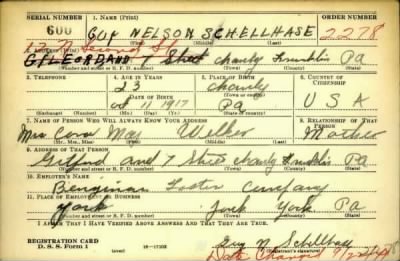 SERIAL NUMBER 1. NAME (Print) ORDER NUMBER
600 GUY NELSON SCHELLHASE 2278
(First) (Middle) (Last)
2. ADDRESS (Print)
GILFORD AND 7 Street Chamby Franklin Pa
(Number and street or R. F. D. number) (Town) (County) (State)
3. TELEPHONE 4. AGE IN YEARS 5. PLACE OF BIRTH 6. COUNTRY OF CITIZENSHIP
23 Chamby
DATE OF BIRTH
Oct 11 1917 Pa U S A
(Exchange) (Number) (Mo.) (Day) (Yr.) (State or country)
7. NAME OF PERSON WHO WILL ALWAYS KNOW YOUR ADDRESS 8. RELATIONSHIP OF THAT PERSON
Mrs Cora May Welker Mother
(Mr., Mrs., Miss) (First) (Middle) (Last)
9. ADDRESS OF THAT PERSON
Gilford and 7 Street Chamby Franklin Pa
(Number and street or R. F. D. number) (Town) (County) (State)
10. EMPLOYER'S NAME
Benginan Foster Company
11. PLACE OF EMPLOYMENT OR BUSINESS
York York York Pa
(Number and street or R. F. D. number) (Town) (County) (State)
I AFFIRM THAT I HAVE VERIFIED ABOVE ANSWERS AND THAT THEY ARE TRUE.
REGISTRATION CARD
D. S. S. Form 1 16—17105 Guy N Schellhase
Date Changed